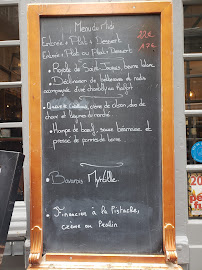 Menu de Midi
Entrée + Plat + Dessert 22€
Entrée + Plat ou Plat + Dessert 19€
• Royale de Saint-Jacques, beurre blanc
• Déclinaison de betteraves et noix
accompagnée d'une chantilly au Raifort
crème de oignon, duo de
chou et légumes du marché
• Hampe de bœuf, sauce béarnaise et
pressé de pommes de terre
• Bavarois Myrtille
• Financier à la Pistache,
crème au Praliné
20